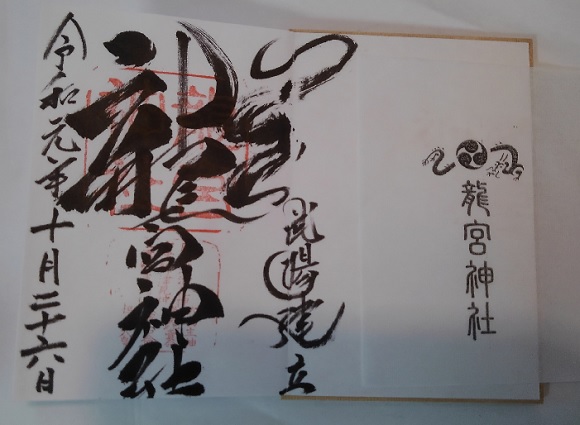 龍宮神社
武揚建立
龍宮神社
令和元年十月二十六日